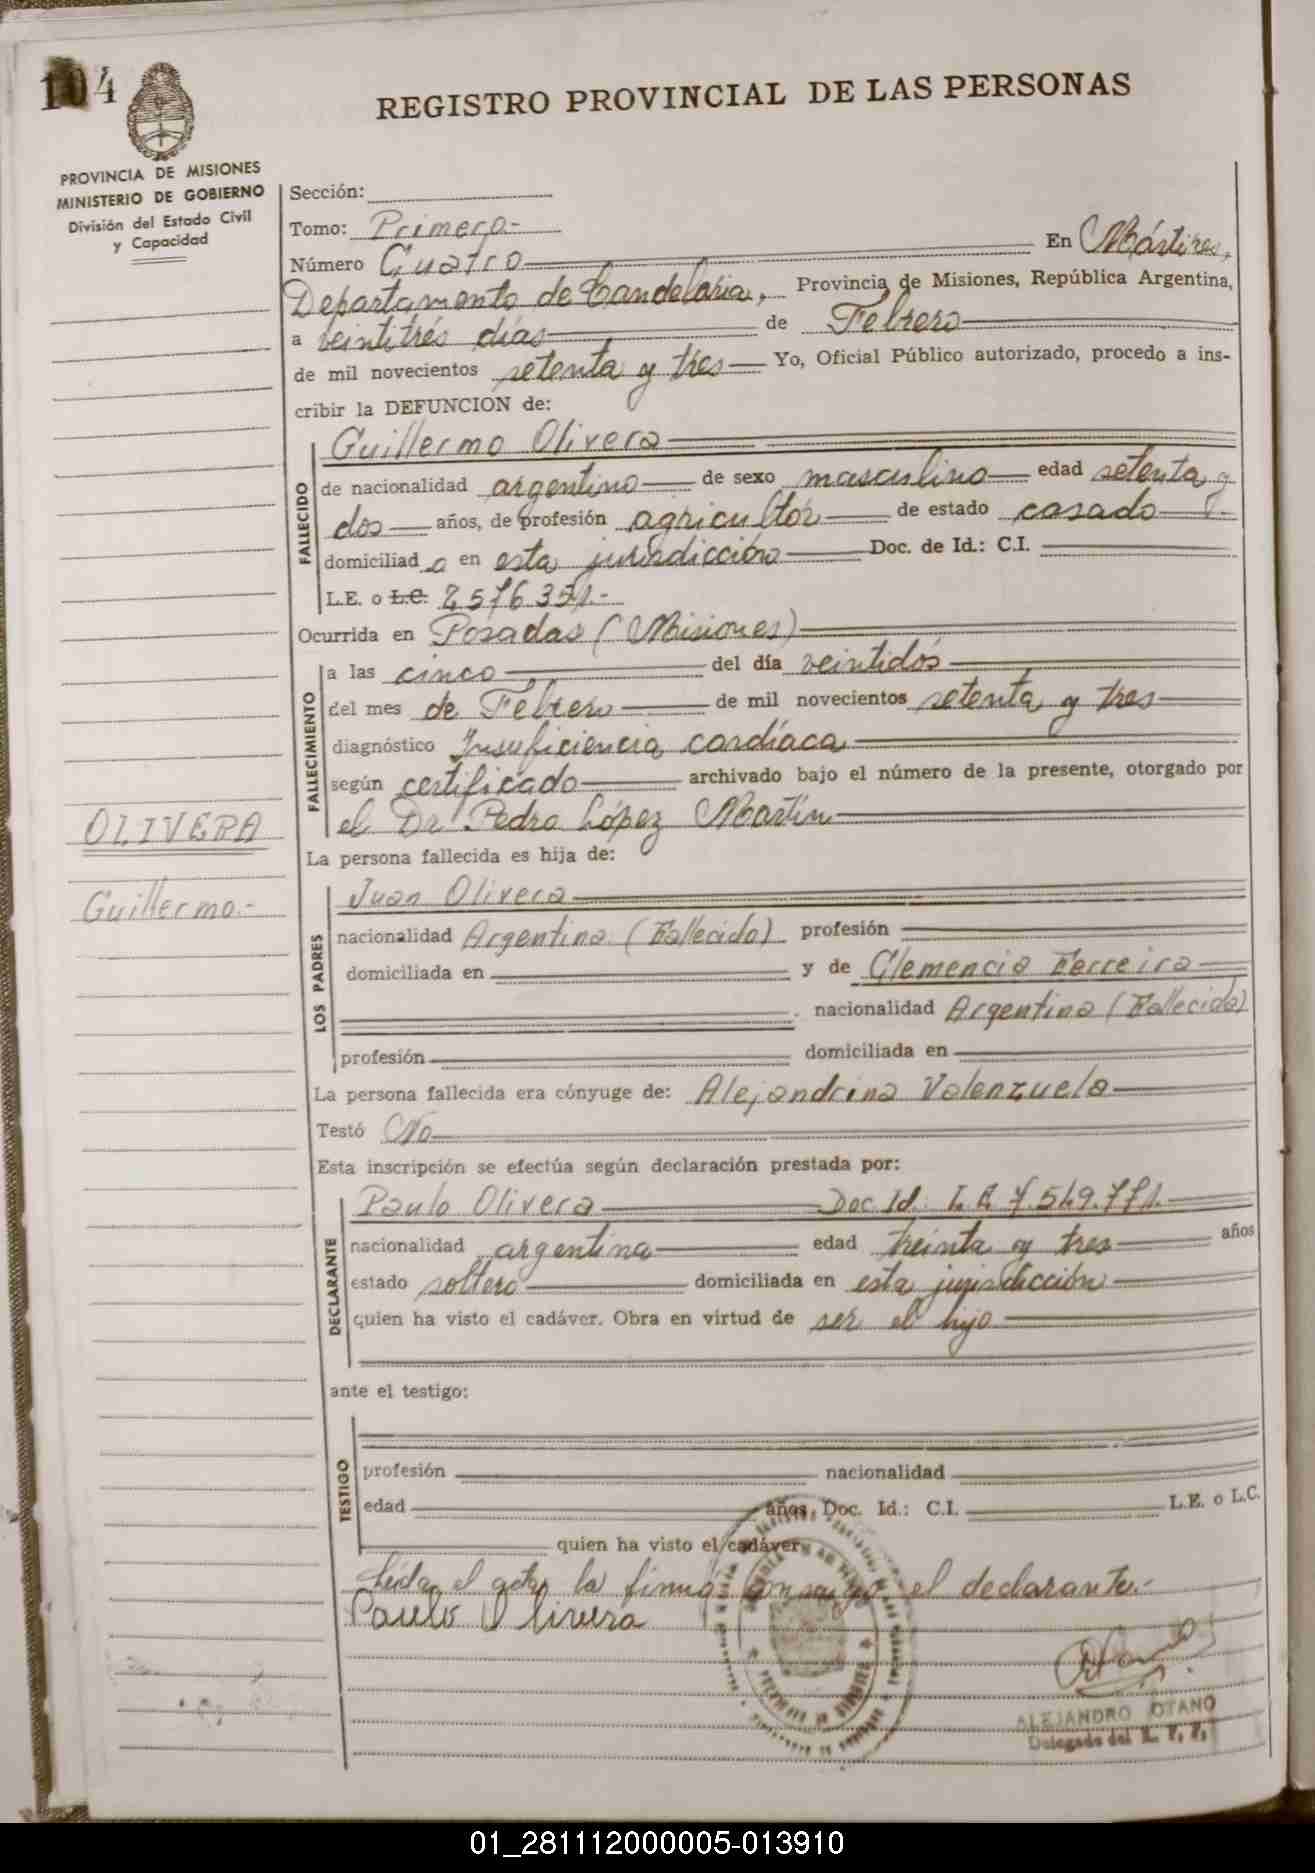 104
REGISTRO PROVINCIAL DE LAS PERSONAS
PROVINCIA DE MISIONES
MINISTERIO DE GOBIERNO
División del Estado Civil
y Capacidad
Sección:
Tomo: Primero.-
Número Cuatro En Mártires,
Departamento de Candelaria, Provincia de Misiones, República Argentina,
a veintitrés días de Febrero
de mil novecientos setenta y tres Yo, Oficial Público autorizado, procedo a ins-
cribir la DEFUNCION de:
FALLECIDO
Guillermo Olivera
de nacionalidad argentino de sexo masculino edad setenta y
dos años, de profesión agricultor de estado casado
domiciliado en esta jurisdicción Doc. de Id.: C.I.
L.E. o L.C. 2.576.351.-
Ocurrida en Posadas (Misiones)
FALLECIMIENTO
a las cinco del día veintidós
del mes de Febrero de mil novecientos setenta y tres
diagnóstico Insuficiencia cardíaca
según certificado archivado bajo el número de la presente, otorgado por
el Dr Pedro López Martín
OLIVERA
Guillermo.-
La persona fallecida es hija de:
LOS PADRES
Juan Olivera
nacionalidad Argentina (Fallecido) profesión
domiciliada en y de Clemencia Ferreira
nacionalidad Argentina (Fallecida)
profesión domiciliada en
La persona fallecida era cónyuge de: Alejandrina Valenzuela
Testó No
Esta inscripción se efectúa según declaración prestada por:
DECLARANTE
Paulo Olivera Doc. Id.: L.E 7.549.771.
nacionalidad argentina edad treinta y tres años
estado soltero domiciliada en esta jurisdicción
quien ha visto el cadáver. Obra en virtud de ser el hijo
ante el testigo:
TESTIGO
profesión nacionalidad
edad años, Doc. Id.: C.I. L.E. o L.C.
quien ha visto el cadáver
Leída el acta la firma conmigo el declarante.-
Paulo Olivera
ALEJANDRO OTANO
Delegado del R. P. P.
01_281112000005-013910